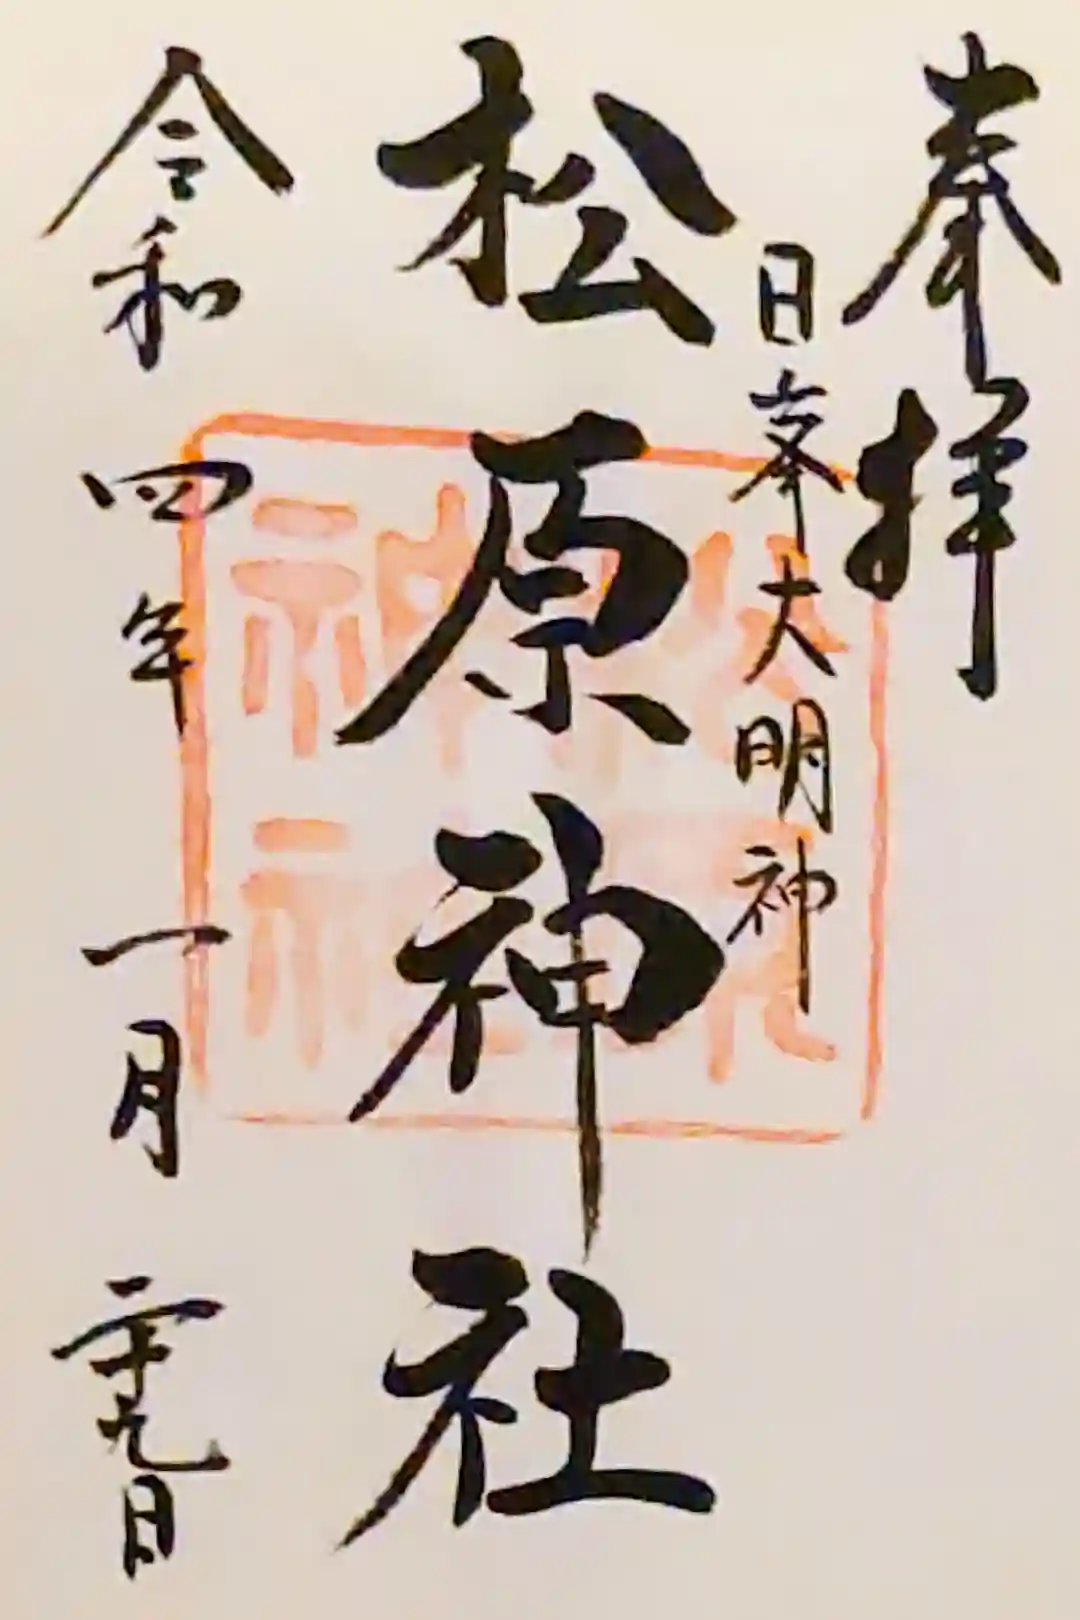 奉拝
日峯大明神
松原神社
令和四年一月二十九日
松原
神社